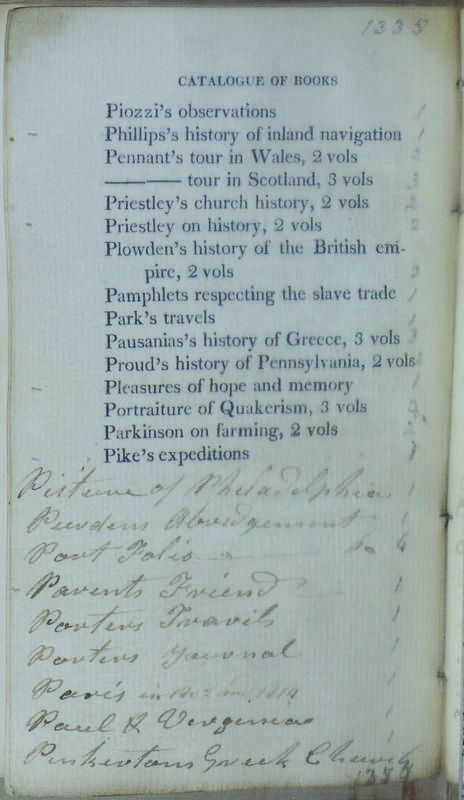 1335
CATALOGUE OF BOOKS
Piozzi's observations 1
Phillips's history of inland navigation 1
Pennant's tour in Wales, 2 vols 2
——— tour in Scotland, 3 vols 3
Priestley's church history, 2 vols 2
Priestley on history, 2 vols 2
Plowden's history of the British em-
pire, 2 vols 2
Pamphlets respecting the slave trade 1
Park's travels 1
Pausanias's history of Greece, 3 vols 3
Proud's history of Pennsylvania, 2 vols
Pleasures of hope and memory 1
Portraiture of Quakerism, 3 vols 3
Parkinson on farming, 2 vols 2
Pike's expeditions 1
Picture of Philadelphia 1
Abridgement 1
Port Folio 6 6
Parents Friend 1
Porters Travils 1
Porters Journal 1
Paris in 1802 and 1814 1
Paul & Verginia 1
Pinkertons Greek Church